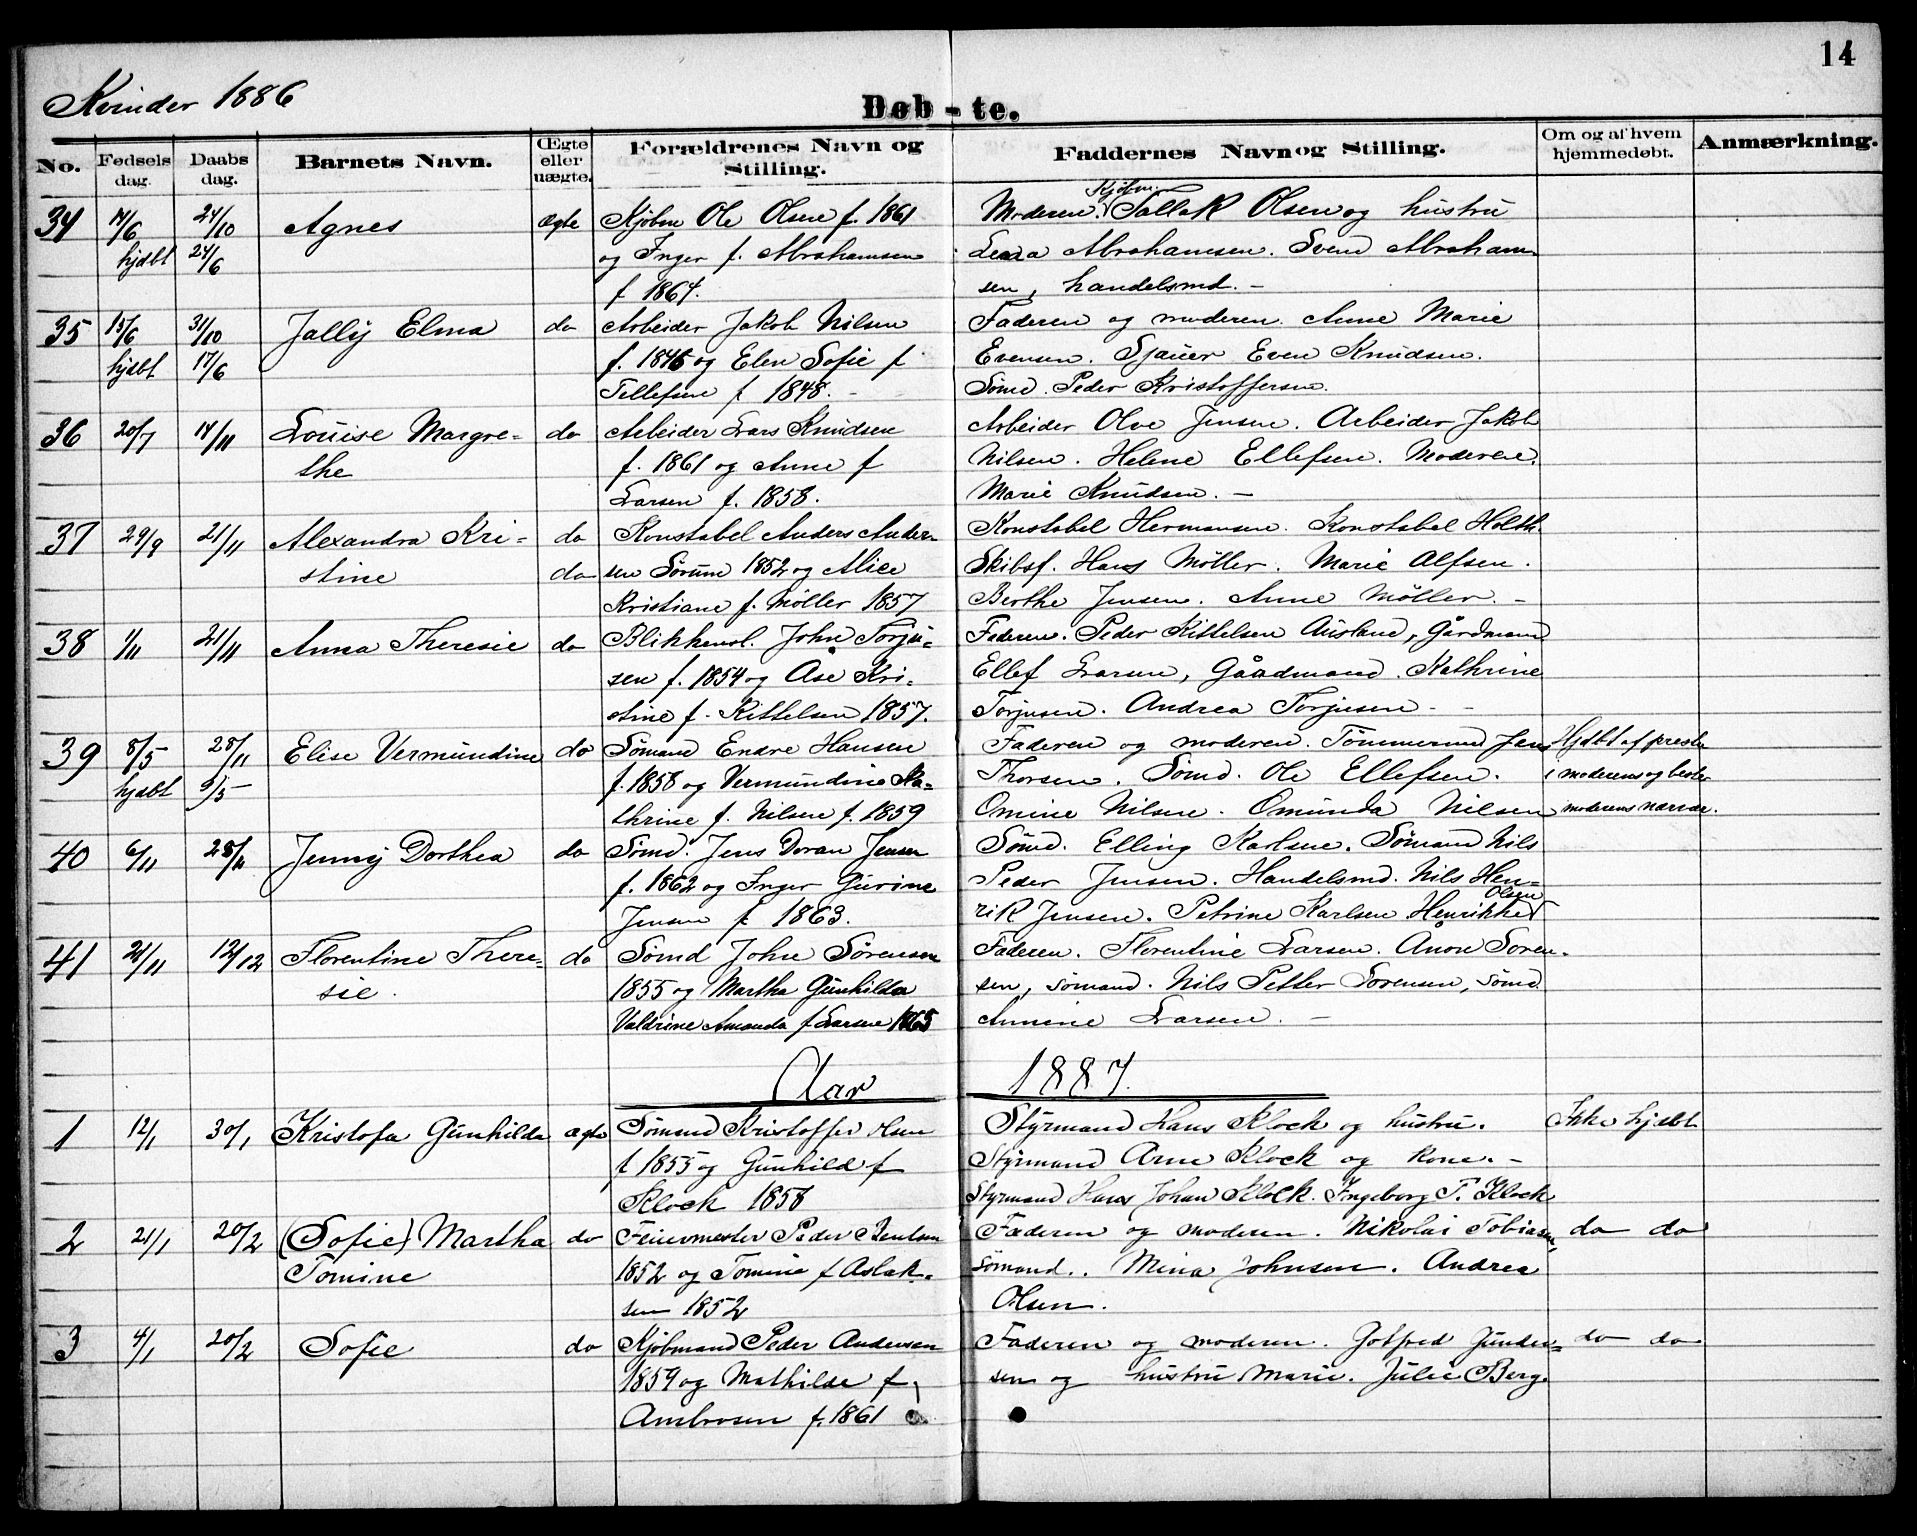 14
Kvinder 1886
Døb-te.
No.
Fødsels dag.
Daabs dag.
Barnets Navn.
Ægte eller uægte.
Forældrenes Navn og Stilling.
Faddernes Navn og Stilling.
Om og af hvem hjemmedøbt.
Anmærkning.
34 14/6 24/10 Agnes ægte Kjøbm Ole Olsen f. 1861 Moderen. Kjøbm. Tallak Olsen og hustru
hjdbt 24/6 og Inger f. Abrahamsen Abrahamsen. Svend Abraham-
f 1864. sen, handelsmd. –
35 15/6 31/10 Jally Elma do Arbeider Jakob Nilsen Faderen og moderen. Anne Marie
hjdbt 17/6 f. 1846 og Elen Sofie f Evensen. Sjauer Even Knudsen.
Tellefsen f 1848. – Sømd. Peder Kristoffersen.
36 20/7 14/11 Louise Margre- do Arbeider Lars Knudsen Arbeider Olve Jensen. Arbeider Jakob
the f. 1861 og Anne f Nilsen. Helene Ellefsen. Moderen.
Larsen f. 1858. Marie Knudsen. –
37 29/9 21/11 Alexandra Kri- do Konstabel Anders Ander- Konstabel Hermansen. Konstabel Holth.
stine do sen Sørum 1852 og Alice Skibsf. Hans Møller. Marie Alfsen.
Kristiane f. Møller 1857 Berthe Jensen. Anne Møller. –
38 1/11 21/11 Anna Theresie do Blikkensl. John Torju- Faderen. Peder Kittelsen Ausland, Gårdmand
sen f. 1854 og Åse Kri- Ellef Larsen, Gårdmand. Kathrine
stine f. Kittelsen 1857. Torjusen. Andrea Torjusen –
39 8/5 28/11 Elise Vermundine do Sømand Endre Hansen Faderen og moderen. Tømmermd Jens Hjdbt af presten
hjdbt 9/5 f. 1858 og Vermundine Ka- Thorsen. Sømd. Ole Ellefsen. i moderens og beste-
thrine f. Nilsen f. 1859 Omine Nilsen. Omunda Nilsen moderens nærvær.
40 6/11 28/11 Jenny Dorthea do Sømd. Jens Doran Jensen Sømd. Elling Karlsen. Sømand Nils
f. 1862 og Inger Gurine Peder Jensen. Handelsmd. Nils Hen-
Jensen f. 1863. rik Jensen. Petrine Karlsen Henrikke Olsen
41 21/11 12/12 Florentine There- do Sømd John Sørensen Faderen. Florentine Larsen. Anon Søren-
sie. 1855 og Martha Gunhilda sen, sømand. Nils Petter Sørensen, sømd
Valdrine Amanda f Larsen 1865 Annine Larsen. –
Aar 1887.
1 12/1 30/1 Kristofa Gunhilda ægte Sømand Kristoffer Olsen Styrmand Hans Klock og hustru. Ikke hjdbt
f 1855 og Gunhild f Styrmand Arne Klock og kone. –
Klock 1858 Styrmand Hans Johan Klock. Ingeborg T. Klock
2 21/1 20/2 (Sofie) Martha do Feiermester Peder Bentsen Faderen og moderen. Nikolai Tobiasen, do do
Tomine 1852 og Tomine f Aslak- sømand. Mina Johnsen. Andrea
sen 1852 Olsen.
3 4/1 20/2 Sofie do Kjøbmand Peder Andersen Faderen og moderen. Gotfred Gunder- do do
1859 og Mathilde f. sen og hustru Marie. Julie Berg.
Ambrosen f. 1861